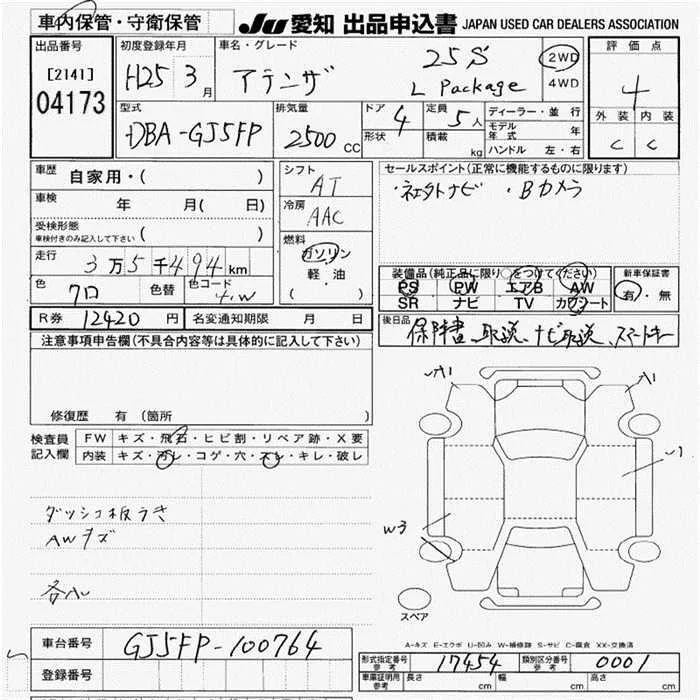 車内保管・守衛保管
JU 愛知 出品申込書 JAPAN USED CAR DEALERS ASSOCIATION
出品番号
[2141]
04173
初度登録年月
H25 3月
車名・グレード
アテンザ
25S
L Package
2WD
4WD
評価点
4
外装 内装
C C
型式
DBA-GJ5FP
排気量
2500 CC
ドア 4
形状
定員 5人
積載 kg
ディーラー・並行
モデル年式 年
ハンドル 左・右
車歴
自家用・( )
車検
年 月( 日)
受検形態
車検付きのみ記入して下さい ( )
走行
3万5千494km
色
色替
色コード
シフト
AT
冷房
AAC
燃料
ガソリン
軽・油
( )
セールスポイント(正常に機能するものに限ります)
・社外ナビ ・Bカメラ
装備品(純正品に限り○をつけてください)
PS PW エアB AW
SR ナビ TV カワシート
新車保証書
有・無
R券 12420 円
名変通知期限 月 日
後日品
保障書、取説、ナビ取説、スマートキー
注意事項申告欄(不具合内容等は具体的に記入して下さい)
修復歴 有(箇所 )
検査員記入欄
FW キズ・飛石・ヒビ割・リペア跡・X要
内装 キズ・汚レ・コゲ・穴・スレ・キレ・破レ
ダッシュ板うき
AWキズ
各小
A1
A1
U1
W3
スペア
A-キズ E-エクボ U-凹み W-補修跡 S-サビ C-腐食 XX-交換済
車台番号
GJ5FP-100764
登録番号
形式指定番号
参考
17454
類別区分番号
参考
0001
車庫証明用
参考
長さ cm 幅 cm 高さ cm